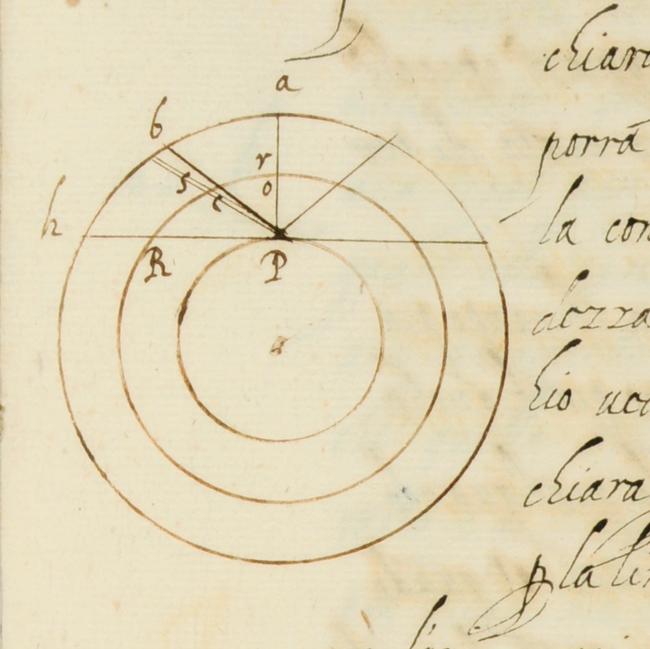 a
b
r
o
s c
h
R P
a
chiar
porrà
la con
dezza
chiara
p la li